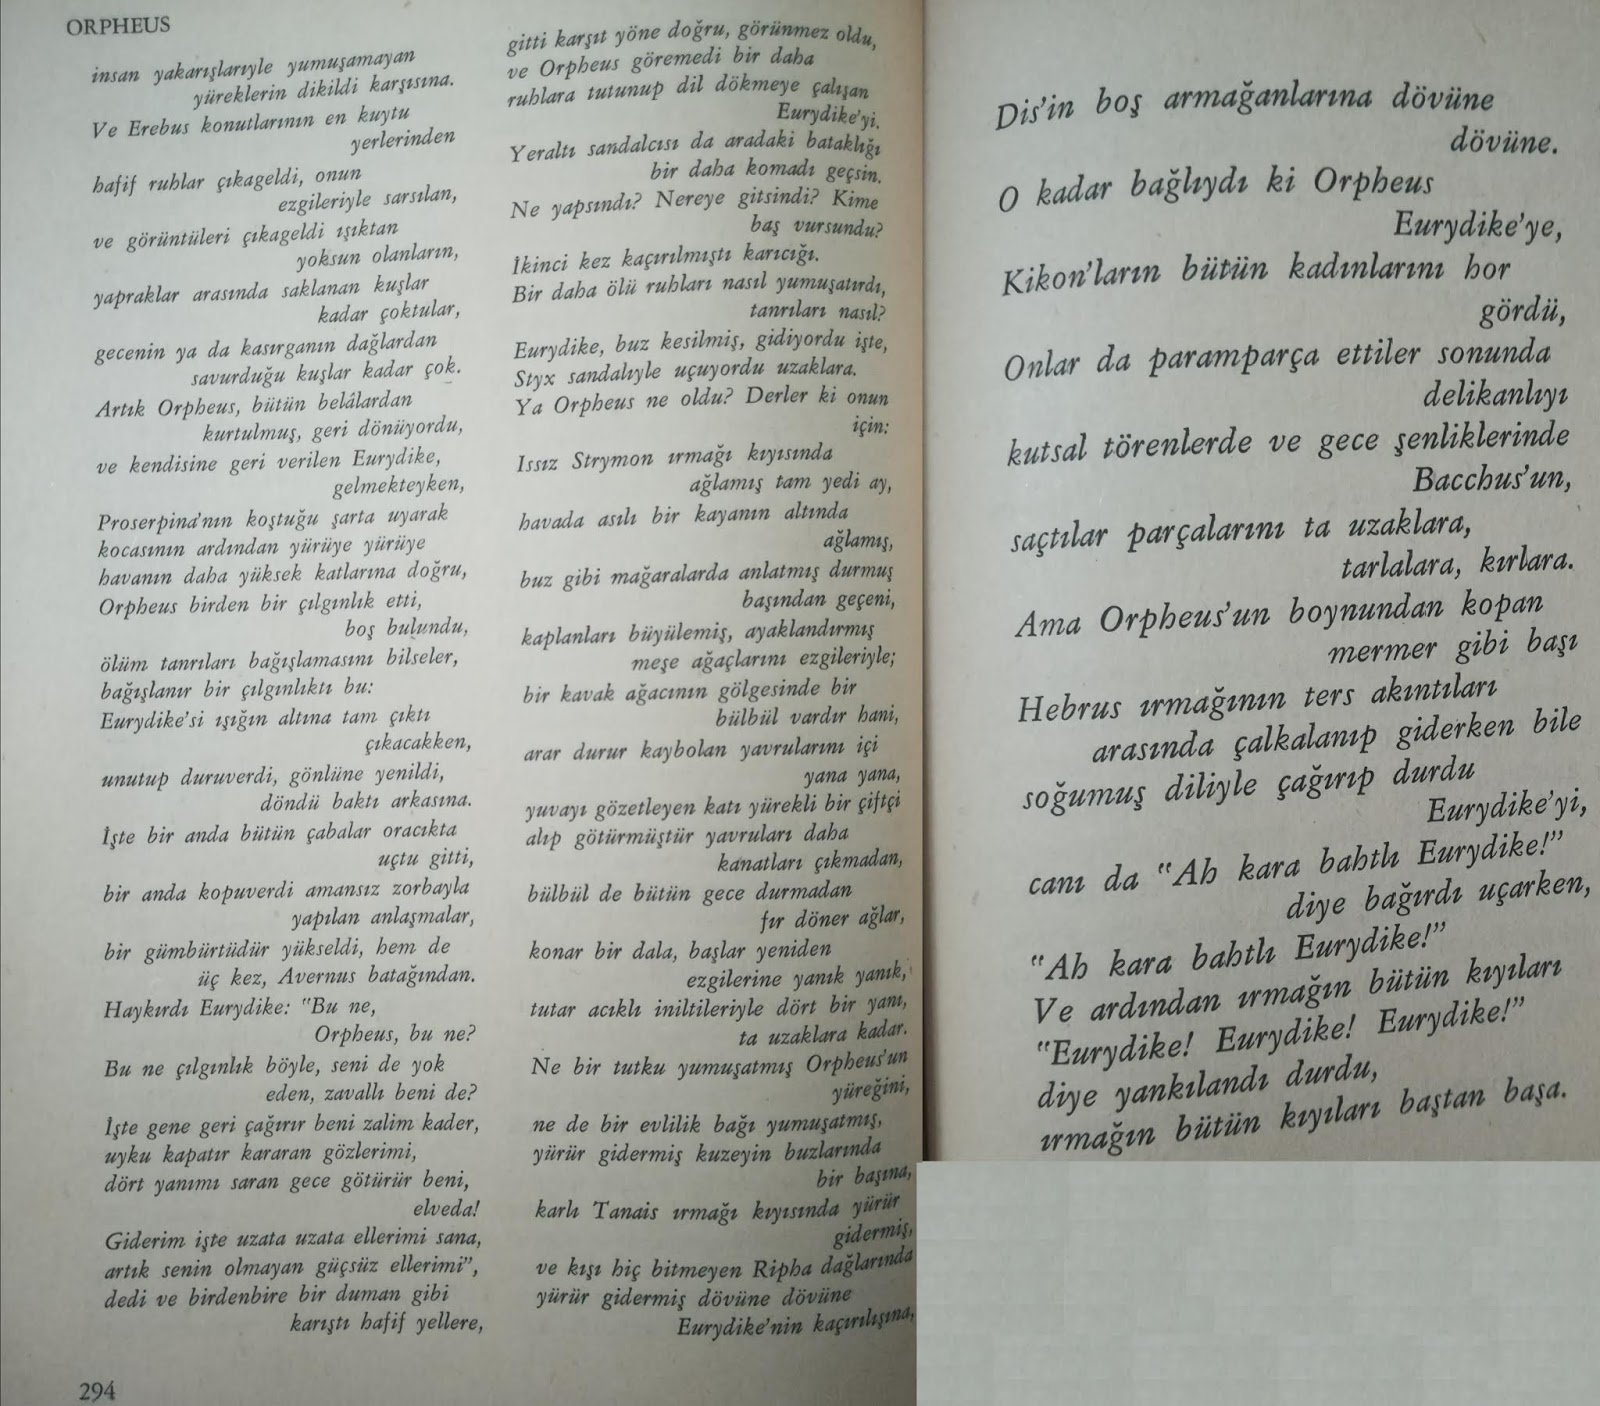 ORPHEUS
insan yakarışlarıyle yumuşamayan
yüreklerin dikildi karşısına.
Ve Erebus konutlarının en kuytu
yerlerinden
hafif ruhlar çıkageldi, onun
ezgileriyle sarsılan,
ve görüntüleri çıkageldi ışıktan
yoksun olanların,
yapraklar arasında saklanan kuşlar
kadar çoktular,
gecenin ya da kasırganın dağlardan
savurduğu kuşlar kadar çok.
Artık Orpheus, bütün belâlardan
kurtulmuş, geri dönüyordu,
ve kendisine geri verilen Eurydike,
gelmekteyken,
Proserpina'nın koştuğu şarta uyarak
kocasının ardından yürüye yürüye
havanın daha yüksek katlarına doğru,
Orpheus birden bir çılgınlık etti,
boş bulundu,
ölüm tanrıları bağışlamasını bilseler,
bağışlanır bir çılgınlıktı bu:
Eurydike'si ışığın altına tam çıktı
çıkacakken,
unutup duruverdi, gönlüne yenildi,
döndü baktı arkasına.
İşte bir anda bütün çabalar oracıkta
uçtu gitti,
bir anda kopuverdi amansız zorbayla
yapılan anlaşmalar,
bir gümbürtüdür yükseldi, hem de
üç kez, Avernus batağından.
Haykırdı Eurydike: "Bu ne,
Orpheus, bu ne?
Bu ne çılgınlık böyle, seni de yok
eden, zavallı beni de?
İşte gene geri çağırır beni zalim kader,
uyku kapatır kararan gözlerimi,
dört yanımı saran gece götürür beni,
elveda!
Giderim işte uzata uzata ellerimi sana,
artık senin olmayan güçsüz ellerimi",
dedi ve birdenbire bir duman gibi
karıştı hafif yellere,
294
gitti karşıt yöne doğru, görünmez oldu,
ve Orpheus göremedi bir daha
ruhlara tutunup dil dökmeye çalışan
Eurydike'yi.
Yeraltı sandalcısı da aradaki bataklığı
bir daha komadı geçsin.
Ne yapsındı? Nereye gitsindi? Kime
baş vursundu?
İkinci kez kaçırılmıştı karıcığı.
Bir daha ölü ruhları nasıl yumuşatırdı,
tanrıları nasıl?
Eurydike, buz kesilmiş, gidiyordu işte,
Styx sandalıyle uçuyordu uzaklara.
Ya Orpheus ne oldu? Derler ki onun
için:
Issız Strymon ırmağı kıyısında
ağlamış tam yedi ay,
havada asılı bir kayanın altında
ağlamış,
buz gibi mağaralarda anlatmış durmuş
başından geçeni,
kaplanları büyülemiş, ayaklandırmış
meşe ağaçlarını ezgileriyle;
bir kavak ağacının gölgesinde bir
bülbül vardır hani,
arar durur kaybolan yavrularını içi
yana yana,
yuvayı gözetleyen katı yürekli bir çiftçi
alıp götürmüştür yavruları daha
kanatları çıkmadan,
bülbül de bütün gece durmadan
fır döner ağlar,
konar bir dala, başlar yeniden
ezgilerine yanık yanık,
tutar acıklı iniltileriyle dört bir yanı,
ta uzaklara kadar.
Ne bir tutku yumuşatmış Orpheus'un
yüreğini,
ne de bir evlilik bağı yumuşatmış,
yürür gidermiş kuzeyin buzlarında
bir başına,
karlı Tanais ırmağı kıyısında yürür
gidermiş,
ve kışı hiç bitmeyen Ripha dağlarında
yürür gidermiş dövüne dövüne
Eurydike'nin kaçırılışına,
Dis'in boş armağanlarına dövüne
dövüne.
O kadar bağlıydı ki Orpheus
Eurydike'ye,
Kikon'ların bütün kadınlarını hor
gördü,
Onlar da paramparça ettiler sonunda
delikanlıyı
kutsal törenlerde ve gece şenliklerinde
Bacchus'un,
saçtılar parçalarını ta uzaklara,
tarlalara, kırlara.
Ama Orpheus'un boynundan kopan
mermer gibi başı
Hebrus ırmağının ters akıntıları
arasında çalkalanıp giderken bile
soğumuş diliyle çağırıp durdu
Eurydike'yi,
canı da "Ah kara bahtlı Eurydike!"
diye bağırdı uçarken,
"Ah kara bahtlı Eurydike!"
Ve ardından ırmağın bütün kıyıları
"Eurydike! Eurydike! Eurydike!"
diye yankılandı durdu,
ırmağın bütün kıyıları baştan başa.